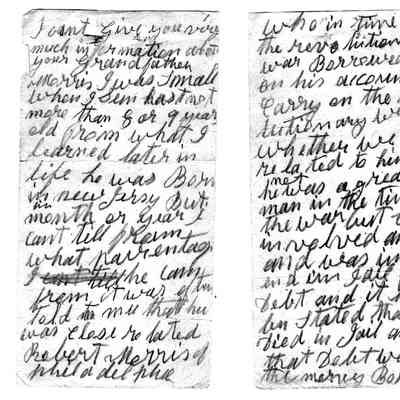 I cant Give you very
much information about
your Grandfather
Morris I was Small
when I Seen him last not
more than 8 or 9 year
old from what I
learned later in
life he was Born
in new Jersy But
month or year I
cant till from
what parrentage
I he came
from it was
told to mee that he
was Close related
Robert Morris of
philadelphia
who in time
the revolution
war Borrowed
on his account
Carry on the
lutionary w
whether we
related to him
he was a grea
man in the tim
the war but
involved an
and was in
end in Jail
Debt and it
ben Stated tha
Died in Jail a
that Debt w
the money Bo